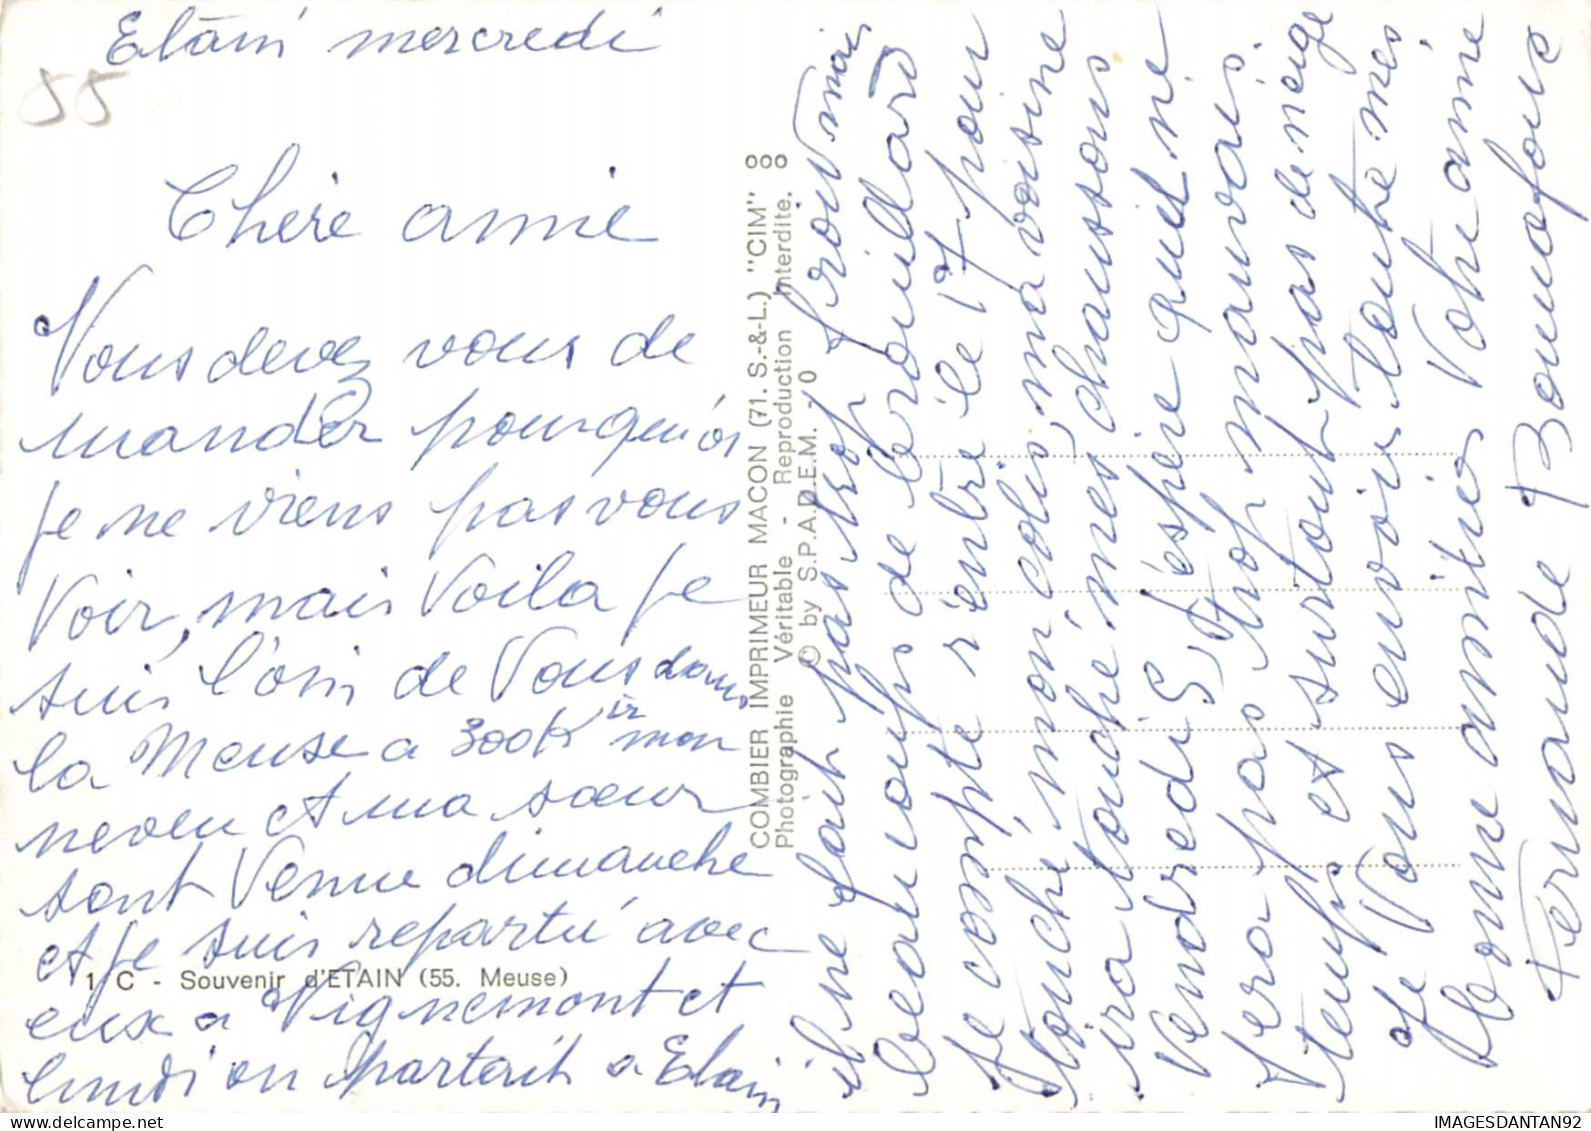 Etain mercredi
55
Chère amie
Vous devez vous de
mander pourquoi
je ne viens pas vous
voir, mais voila je
suis loin de vous dans
la Meuse a 300 K mon
neveu et ma sœur
sont venue dimanche
et je suis reparti avec
eux a Vignemont et
lundi on partait a Etain
1 C - Souvenir d'ETAIN (55. Meuse)
COMBIER IMPRIMEUR MACON (71. S.-&-L.) "CIM"
Photographie Véritable - Reproduction Interdite.
© by S.P.A.D.E.M. - 0
il ne fait pas trop froid mais
beaucoups de brouillard
Je compte rentré le 17 pour
touché mon colis, ma voisine
ira touché mes chaussons
Vendredi 5, J'éspère quil ne
fera pas trop mauvais
temps et surtout pas de neige
Je vous envoie toute mes
bonne amitiés Votre amie
Fernande Bonnafous
IMAGESDANTAN92